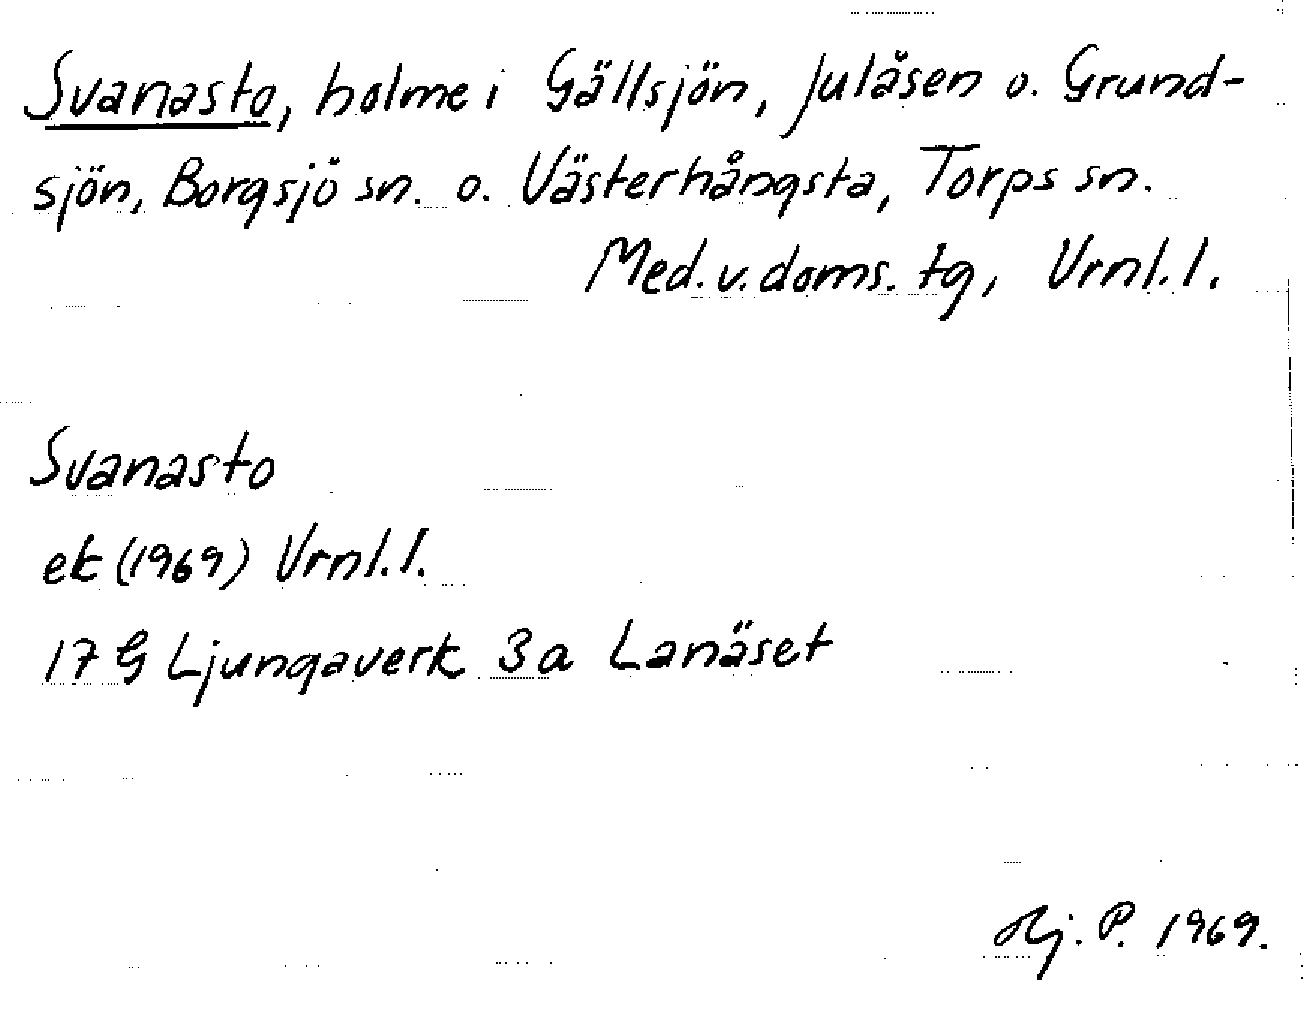 Svanasto, holme i Gällsjön, Julåsen o. Grund-
sjön, Borgsjö sn. o. Västerhångsta, Torps sn.
Med. v. doms. tg, Vrnl. l.
Svanasto
ek (1969) Vrnl. l.
17 G Ljungaverk 3 a Lanäset
Hj. P. 1969.